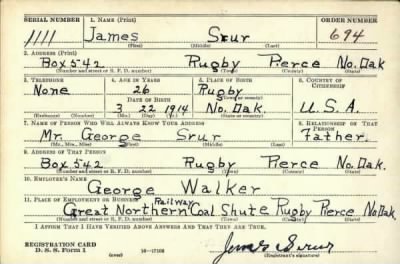 SERIAL NUMBER 1. NAME (Print) ORDER NUMBER
1111 James Srur 694
(First) (Middle) (Last)
2. ADDRESS (Print)
Box 542 Rugby Pierce No. Dak
(Number and street or R. F. D. number) (Town) (County) (State)
3. TELEPHONE 4. AGE IN YEARS 5. PLACE OF BIRTH 6. COUNTRY OF CITIZENSHIP
None 26 Rugby
DATE OF BIRTH
3 22 1914 No. Dak. U.S.A.
(Exchange) (Number) (Mo.) (Day) (Yr.) (State or country)
7. NAME OF PERSON WHO WILL ALWAYS KNOW YOUR ADDRESS 8. RELATIONSHIP OF THAT PERSON
Mr. George Srur Father.
(Mr., Mrs., Miss) (First) (Middle) (Last)
9. ADDRESS OF THAT PERSON
Box 542 Rugby Pierce No. Dak.
(Number and street or R. F. D. number) (Town) (County) (State)
10. EMPLOYER'S NAME
George Walker
11. PLACE OF EMPLOYMENT OR BUSINESS Railway
Great Northern Coal Shute Rugby Pierce No Dak
(Number and street or R. F. D. number) (Town) (County) (State)
I AFFIRM THAT I HAVE VERIFIED ABOVE ANSWERS AND THAT THEY ARE TRUE.
REGISTRATION CARD
D. S. S. Form 1 (over) 16—17105 James Srur
(Registrant's signature)